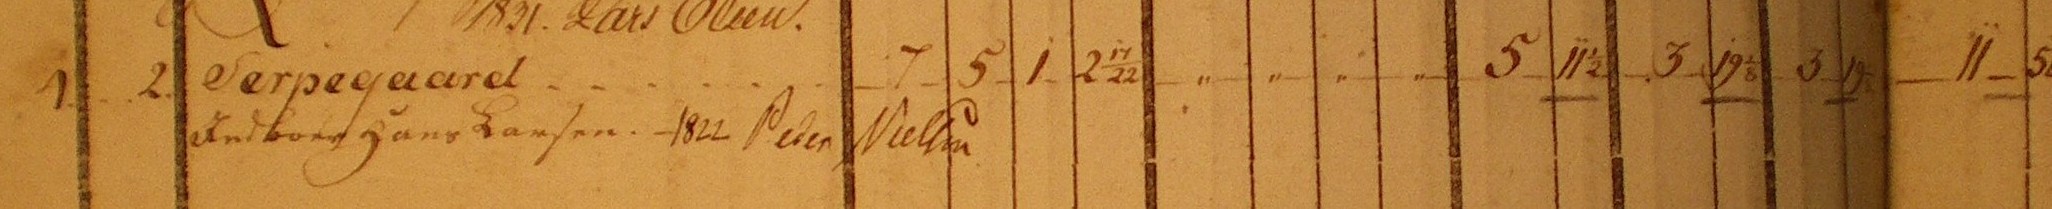 1831. Lars Olsen.
1. 2. Serpegaard 7 5 1 2 17/22 " " " " 5 11 1/2 3 19 1/8 3 19 11
Hans Larsen. 1822 Peder Nielsen